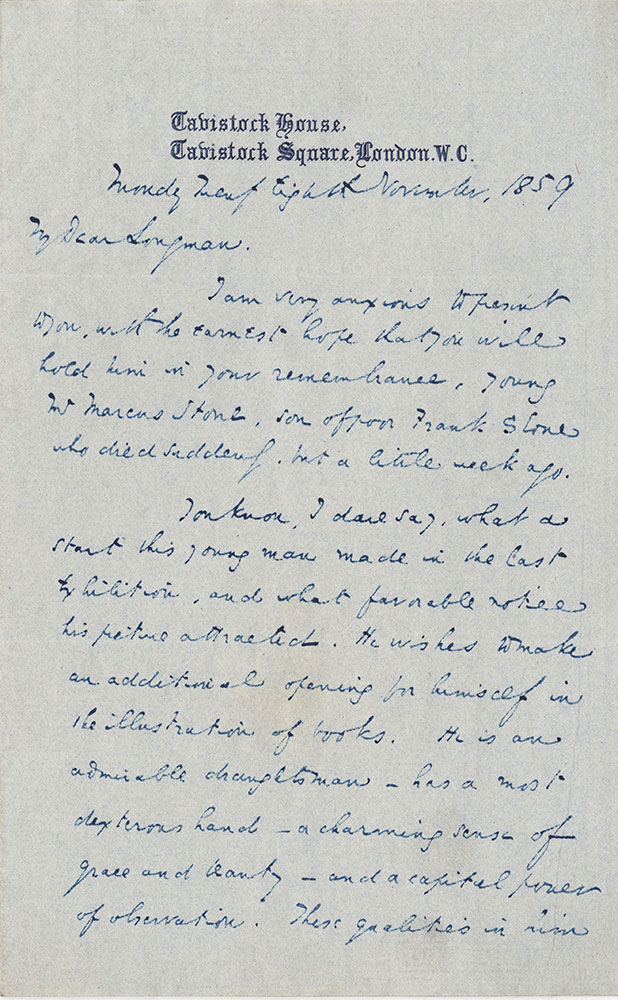 Tavistock House,
Tavistock Square, London. W.C.
Monday Twenty Eighth November, 1859
My Dear Longman.
I am very anxious to present
to you, with the earnest hope that you will
hold him in your remembrance, young
Mr Marcus Stone, son of poor Frank Stone
who died suddenly, but a little week ago.
You know, I dare say, what a
start this young man made in the last
Exhibition, and what favorable notice
his picture attracted. He wishes to make
an additional opening for himself in
the illustration of books. He is an
admirable draughtsman – has a most
dexterous hand – a charming sense of
grace and beauty – and a capital power
of observation. These qualities in him